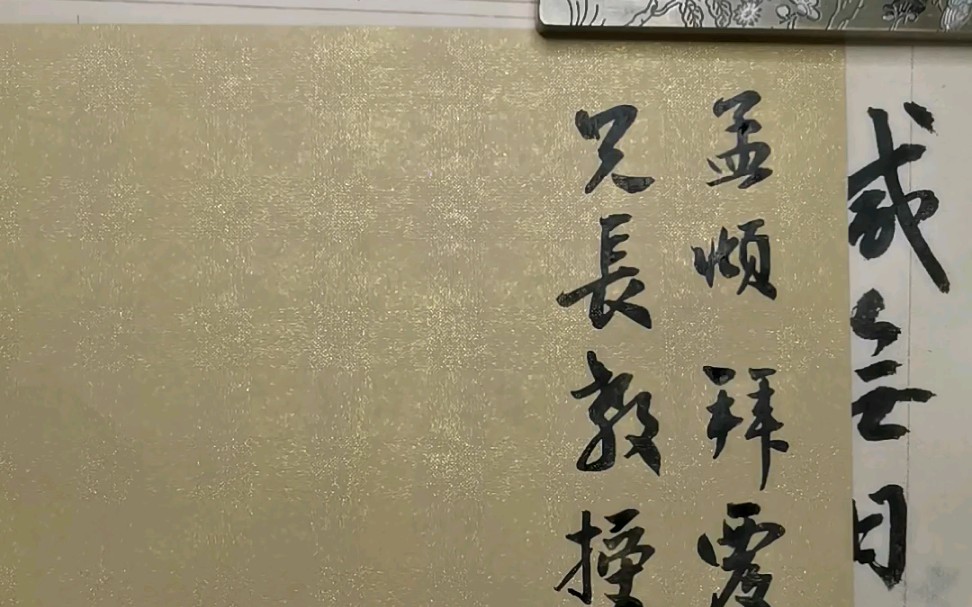 日
孟頫拜覆
兄長教授